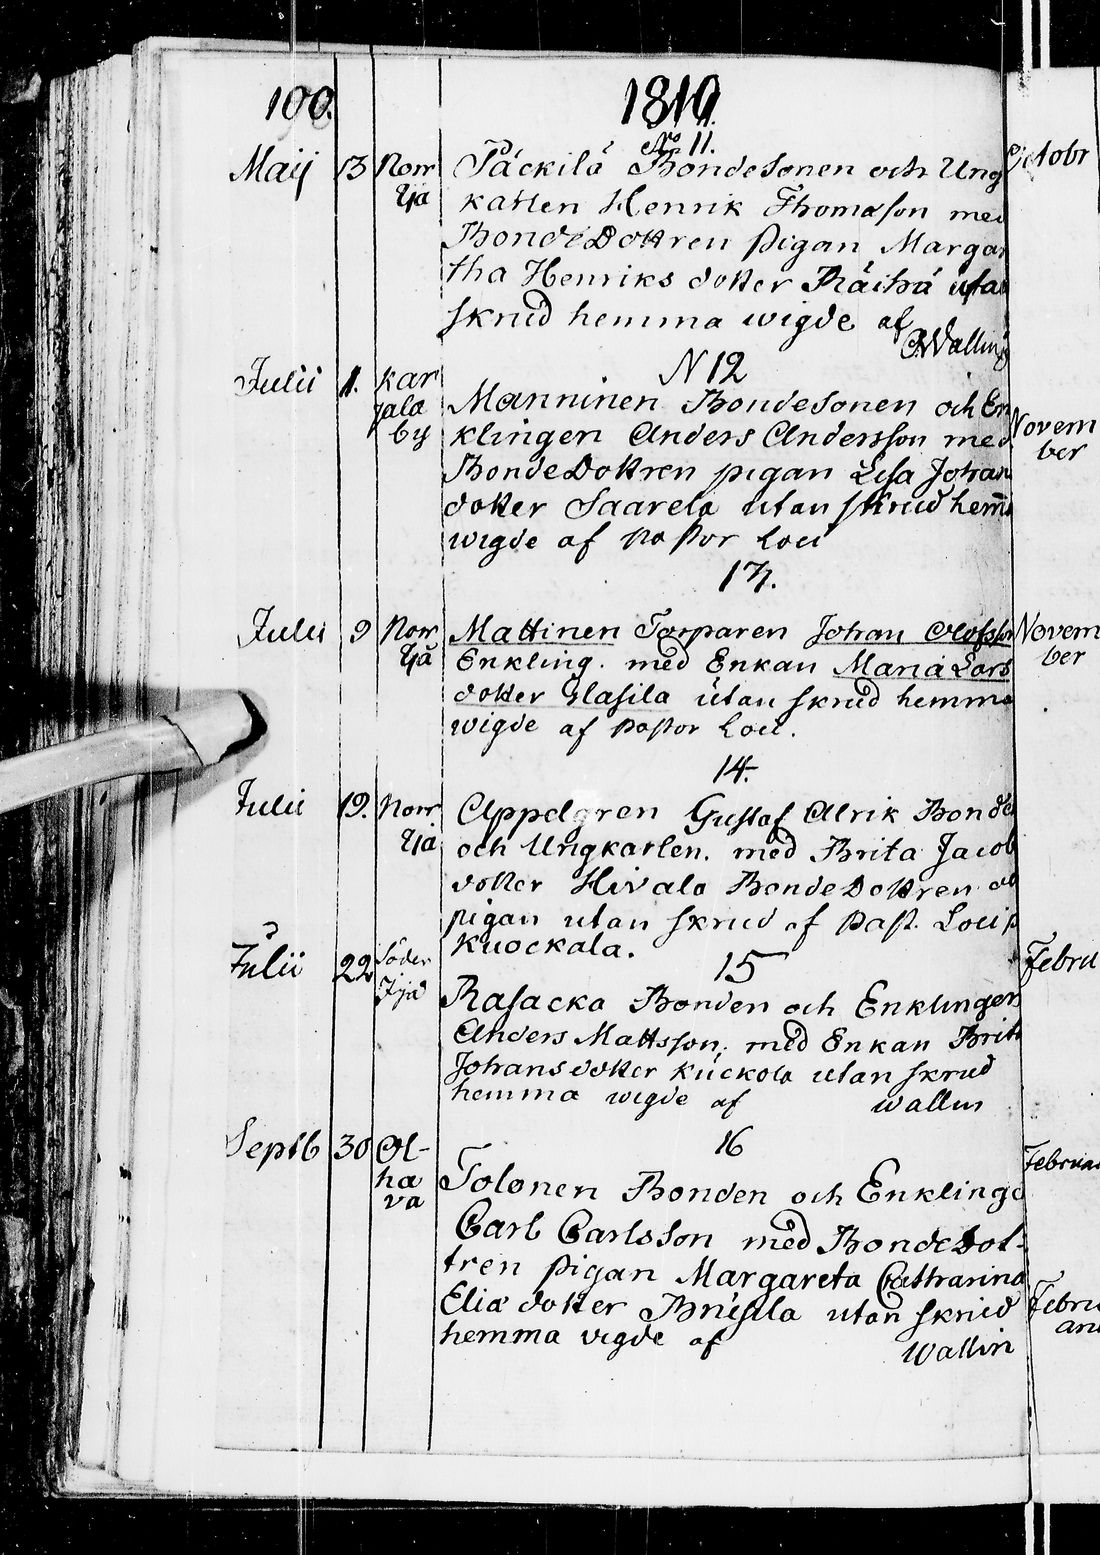 100.
1810.
No. 11.
Maij 13 Norr Päckilä Bondesonen och Ung
Ijä karlen Henrik Thomasson med
BondeDottren pigan Margar
tha Henriks dotter Räihä utan
skrud hemma wigde af
Wallin
N 12
Julii 1. Kar Manninen Bondesonen och En
jala
by klingen Anders Andersson med
BondeDottren pigan Lisa Johan
dotter Saarela utan skrud hem̄a
wigde af Pastor Loci
13.
Julii 9 Norr Mattinen Torparen Johan Olofsson
Ijä Enkling. med Enkan Maria Lars
dotter Glasila utan skrud hemma
wigde af Pastor Loci.
14.
Julii 19. Norr Appelgren Gustaf Alrik Bonde
Ijä och Ungkarlen. med Brita Jacob
dotter Hivala BondeDottren och
pigan utan skrud af Past. Loci p
Kuockala.
15
Julii 22 Söder
Ijä Rasacka Bonden och Enklingen
Anders Mattsson. med Enkan Brita
Johansdotter Kuckola utan skrud
hemma wigde af Wallin
16
Septb 30 Ol-
ha
va Tolonen Bonden och Enklinge
Carl Carlsson med BondeDot-
tren pigan Margareta Catharina
Eliæ dotter Brusila utan skrud
hemma vigde af
Wallin
Octobr
Novem
ber
Novem
ber
Febru
Februa
Febru
ari